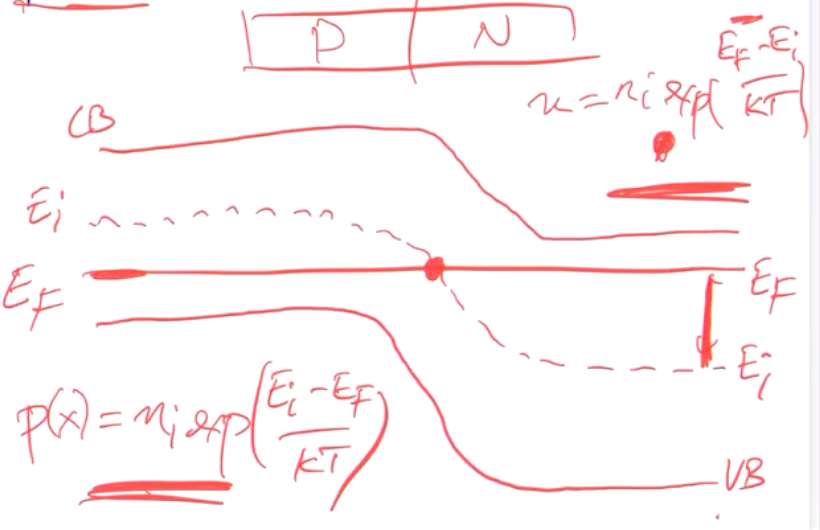 P N
n = ni exp(EF - Ei / KT)
CB
Ei
EF
EF
Ei
p(x) = ni exp(Ei - EF / KT)
VB